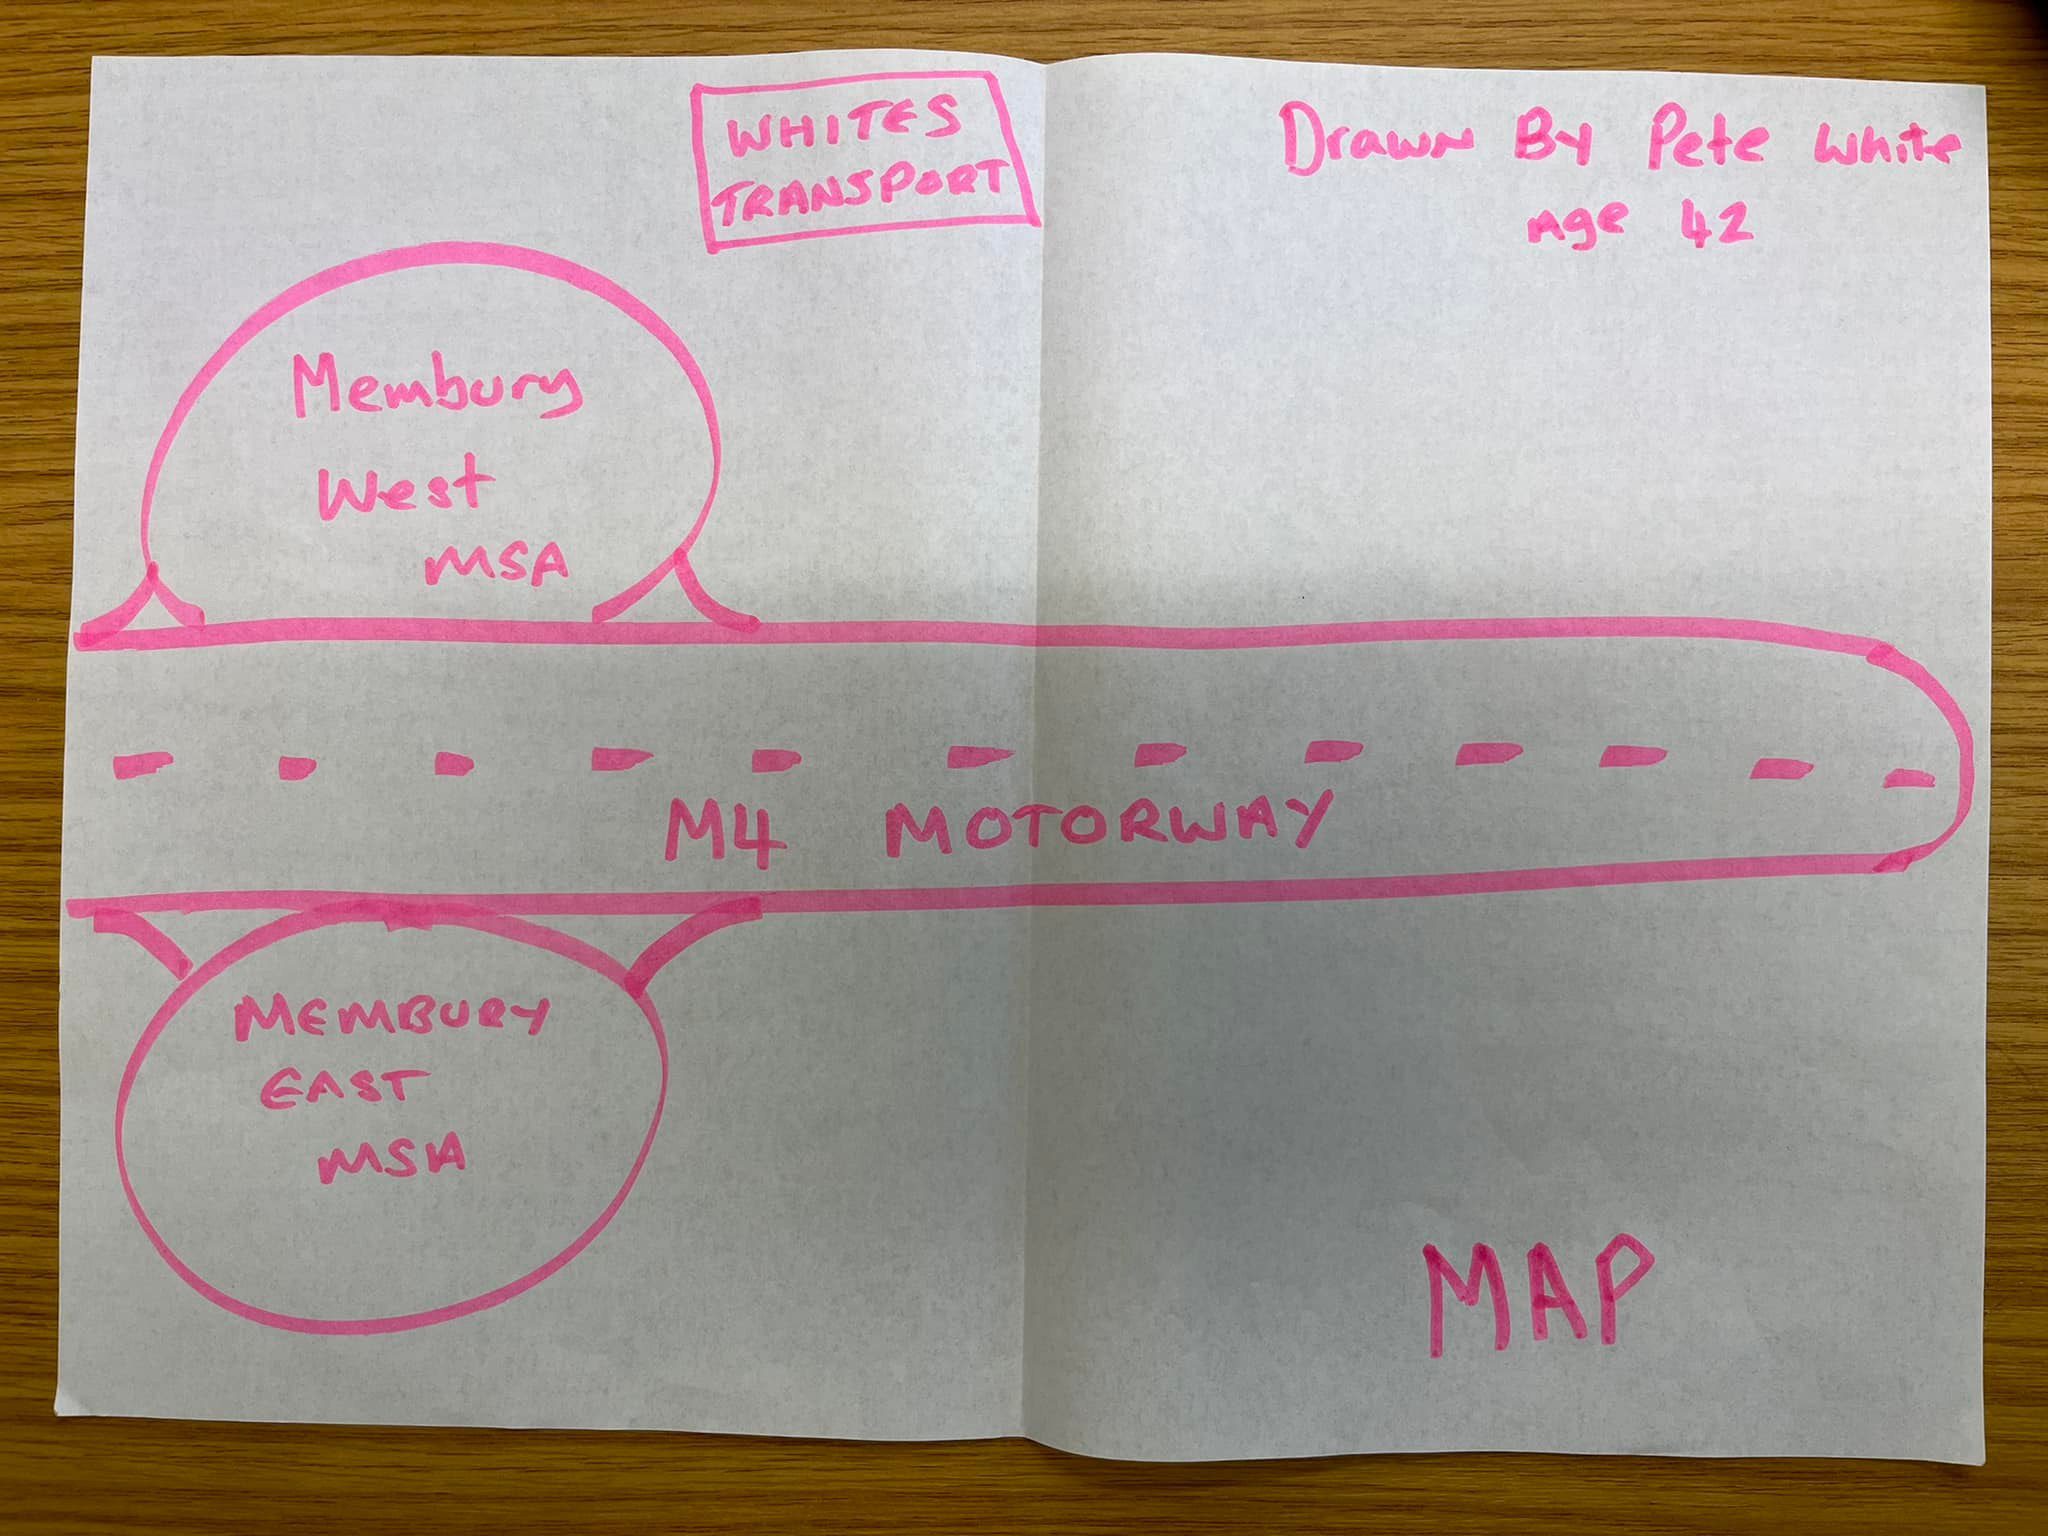 WHITES
TRANSPORT
Drawn By Pete White
Age 42
Membury
West
MSA
M4 MOTORWAY
MEMBURY
EAST
MSA
MAP